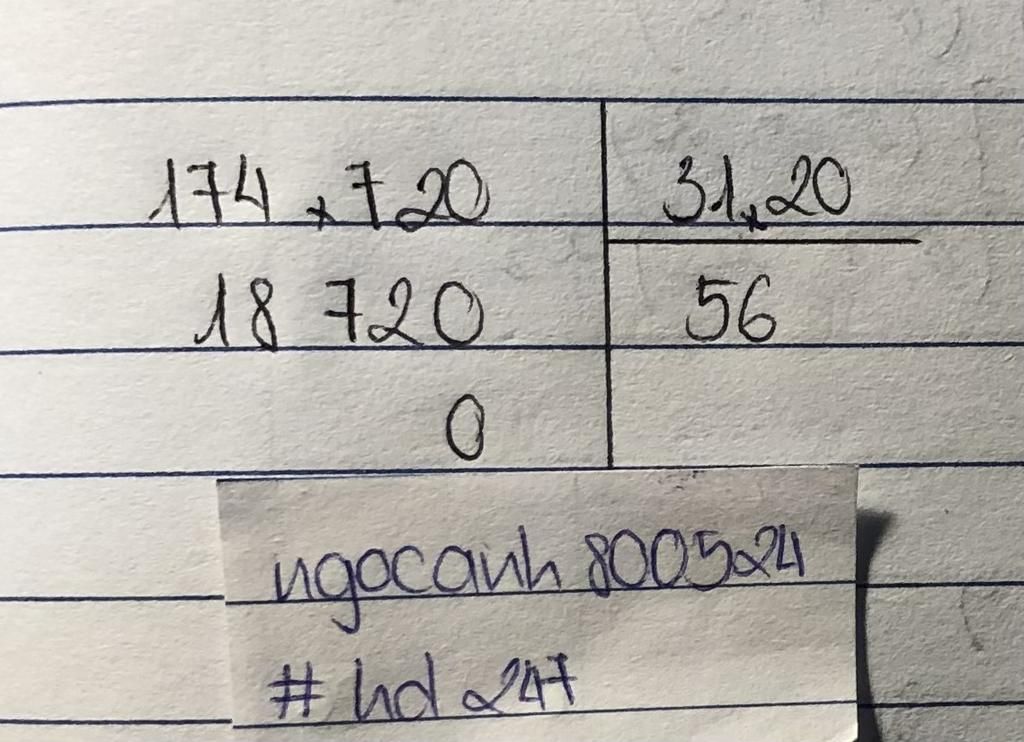 174,720 31,20
18 720 56
0
ngocanh 800524
# hd 247